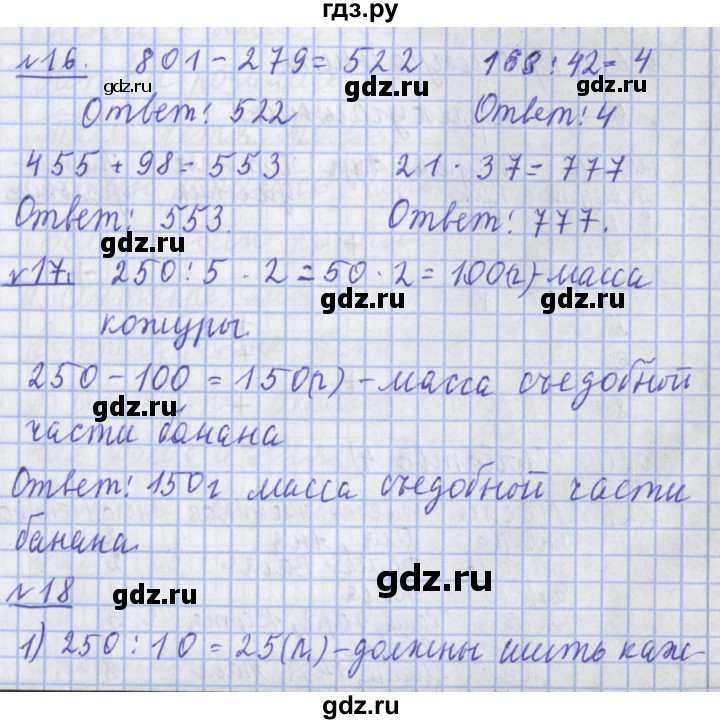 гдз.ру
№16. 801 - 279 = 522 168 : 42 = 4
Ответ: 522 Ответ: 4
455 + 98 = 553 21 · 37 = 777
Ответ: 553. Ответ: 777.
№17. 250 : 5 · 2 = 50 · 2 = 100(г) - масса
кожуры.
250 - 100 = 150(г) - масса съедобной
части банана
Ответ: 150 г масса съедобной части
банана.
№18
1) 250 : 10 = 25(п.) - должны шить каж-
gdz.ru
gdz.ru
gdz.ru
gdz.ru
gdz.ru
gdz.ru
gdz.ru
gdz.ru
gdz.ru
gdz.ru
gdz.ru
gdz.ru
gdz.ru